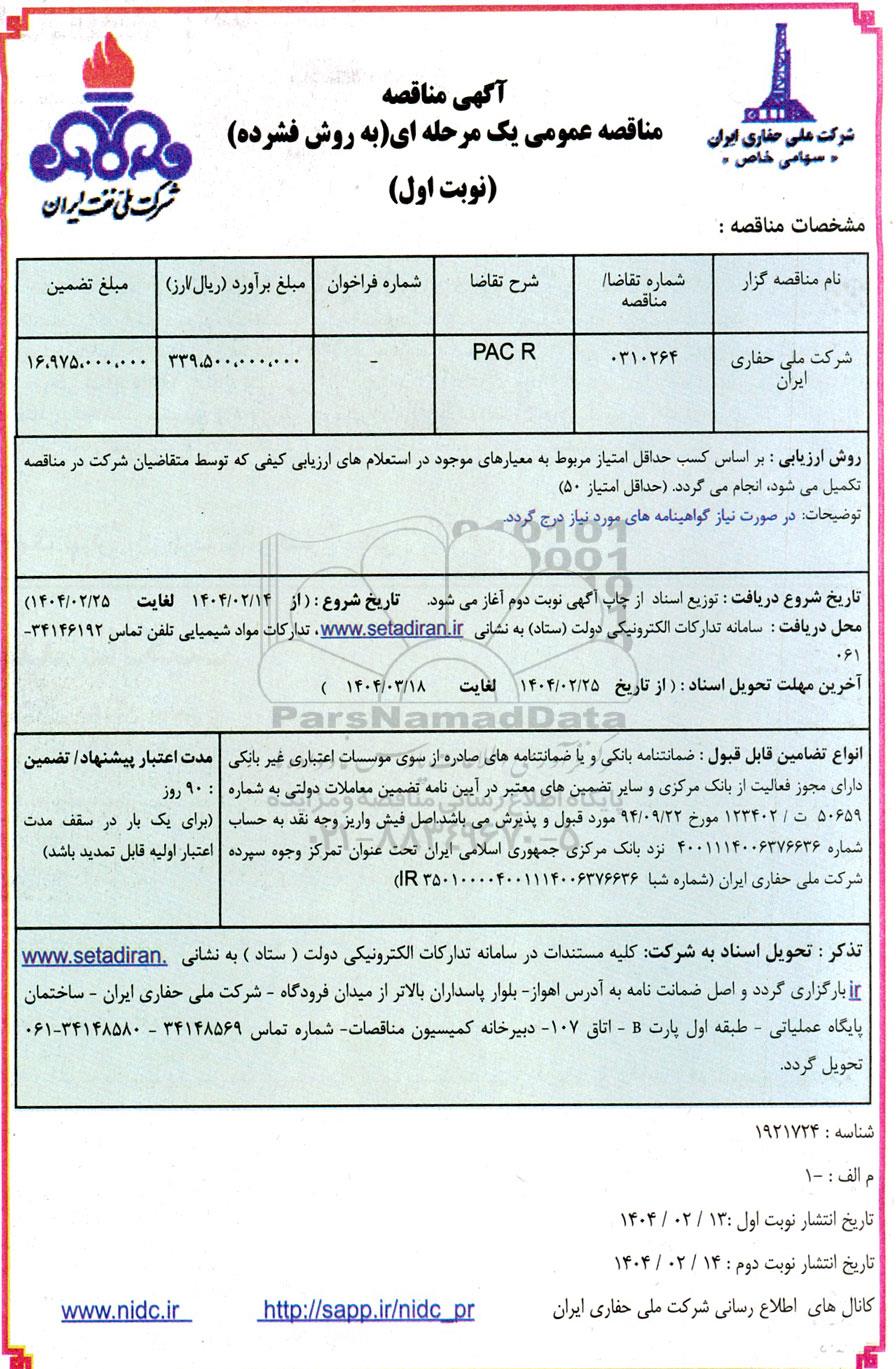 آگهی مناقصه
مناقصه عمومی یک مرحله ای(به روش فشرده)
(نوبت اول)
شرکت ملی حفاری ایران
« سهامی خاص »
شرکت ملی نفت ایران
مشخصات مناقصه :
نام مناقصه گزار
شماره تقاضا/
مناقصه
شرح تقاضا
شماره فراخوان
مبلغ برآورد (ریال/ارز)
مبلغ تضمین
شرکت ملی حفاری
ایران
۰۳۱۰۲۶۴
PAC R
-
۳۳۹،۵۰۰،۰۰۰،۰۰۰
۱۶،۹۷۵،۰۰۰،۰۰۰
روش ارزیابی : بر اساس کسب حداقل امتیاز مربوط به معیارهای موجود در استعلام های ارزیابی کیفی که توسط متقاضیان شرکت در مناقصه
تکمیل می شود، انجام می گردد. (حداقل امتیاز ۵۰)
توضیحات: در صورت نیاز گواهینامه های مورد نیاز درج گردد.
تاریخ شروع دریافت : توزیع اسناد از چاپ آگهی نوبت دوم آغاز می شود. تاریخ شروع : ( از ۱۴۰۴/۰۲/۱۴ لغایت ۱۴۰۴/۰۲/۲۵)
محل دریافت : سامانه تدارکات الکترونیکی دولت (ستاد) به نشانی www.setadiran.ir، تدارکات مواد شیمیایی تلفن تماس ۳۴۱۴۶۱۹۲-
۰۶۱
آخرین مهلت تحویل اسناد : ( از تاریخ ۱۴۰۴/۰۲/۲۵ لغایت ۱۴۰۴/۰۳/۱۸ )
ParsNamadData
پایگاه اطلاع رسانی مناقصه و مزایده
۰۲۱-۸۸۳۴۹۶۷۰-۵
انواع تضامین قابل قبول : ضمانتنامه بانکی و یا ضمانتنامه های صادره از سوی موسسات اعتباری غیر بانکی
دارای مجوز فعالیت از بانک مرکزی و سایر تضمین های معتبر در آیین نامه تضمین معاملات دولتی به شماره
۵۰۶۵۹ ت / ۱۲۳۴۰۲ مورخ ۹۴/۰۹/۲۲ مورد قبول و پذیرش می باشد.اصل فیش واریز وجه نقد به حساب
شماره ۴۰۰۱۱۱۴۰۰۶۳۷۶۶۳۶ نزد بانک مرکزی جمهوری اسلامی ایران تحت عنوان تمرکز وجوه سپرده
شرکت ملی حفاری ایران (شماره شبا IR ۳۵۰۱۰۰۰۰۴۰۰۱۱۱۴۰۰۶۳۷۶۶۳۶)
مدت اعتبار پیشنهاد/ تضمین
: ۹۰ روز
(برای یک بار در سقف مدت
اعتبار اولیه قابل تمدید باشد)
تذکر : تحویل اسناد به شرکت: کلیه مستندات در سامانه تدارکات الکترونیکی دولت ( ستاد ) به نشانی www.setadiran.
ir بارگزاری گردد و اصل ضمانت نامه به آدرس اهواز- بلوار پاسداران بالاتر از میدان فرودگاه - شرکت ملی حفاری ایران - ساختمان
پایگاه عملیاتی - طبقه اول پارت B - اتاق ۱۰۷- دبیرخانه کمیسیون مناقصات- شماره تماس ۳۴۱۴۸۵۶۹ - ۳۴۱۴۸۵۸۰-۰۶۱
تحویل گردد.
شناسه : ۱۹۲۱۷۲۴
م الف : -۱
تاریخ انتشار نوبت اول :۱۳ / ۰۲ / ۱۴۰۴
تاریخ انتشار نوبت دوم : ۱۴ / ۰۲ / ۱۴۰۴
کانال های اطلاع رسانی شرکت ملی حفاری ایران http://sapp.ir/nidc_pr www.nidc.ir